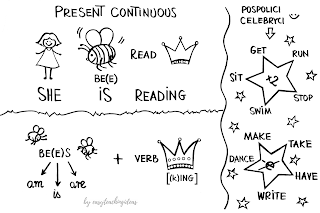 PRESENT CONTINUOUS
READ
BE(E)
SHE IS READING
BE(E)S
am is are
+ VERB
[(k)ING]
by easyteachingideas
POSPOLICI
CELEBRYCI
GET
RUN
SIT
t2
STOP
SWIM
MAKE
TAKE
DANCE
e
HAVE
WRITE